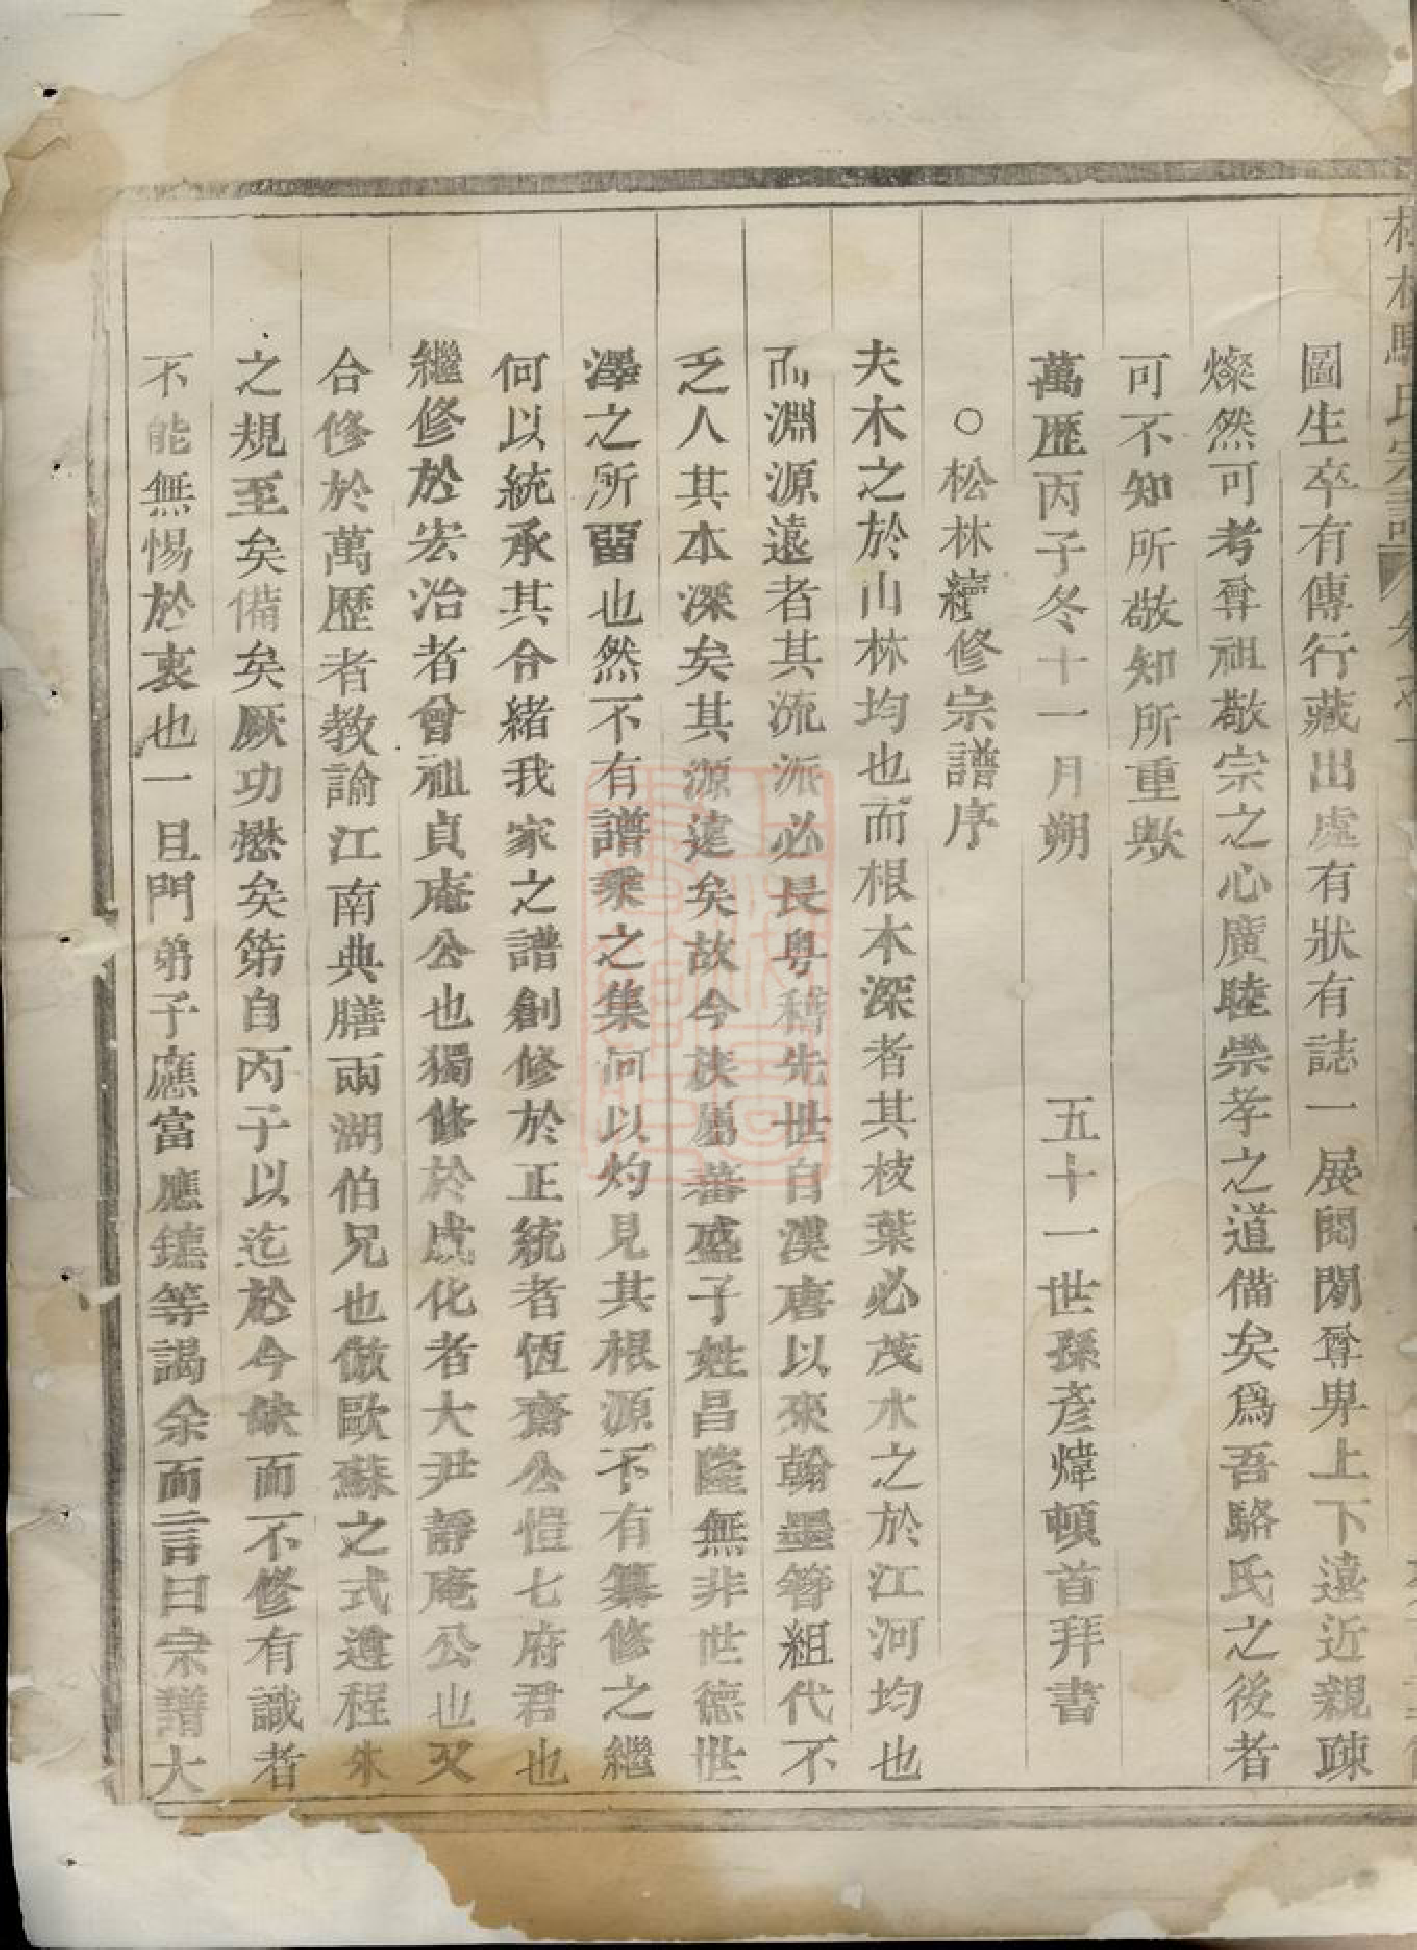 圖生卒有傳行藏出處有狀有誌一展閱閒尊卑上下遠近親疎
燦然可考尊祖敬宗之心廣睦崇孝之道備矣爲吾駱氏之後者
可不知所敬知所重歟
萬歷丙子冬十一月朔 五十一世孫彥煒頓首拜書
○松林續修宗譜序
夫木之於山林均也而根本深者其枝葉必茂水之於江河均也
而淵源遠者其流派必長粤稽先世自漢唐以來翰墨簪組代不
乏人其本深矣其源遠矣故今族屬蕃盛子姓昌隆無非世德世
澤之所留也然不有譜乘之集何以灼見其根源不有纂修之繼
何以統承其合緒我家之譜創修於正統者恆齋公愷七府君也
繼修於宏治者曾祖貞庵公也獨修於成化者大尹靜庵公也又
合修於萬歷者教諭江南典膳兩湖伯兄也倣歐蘇之式遵程朱
之規至矣備矣厥功懋矣第自丙子以迄於今缺而不修有識者
不能無惕於衷也一旦門弟子應富應鐘等謁余而言曰宗譜大